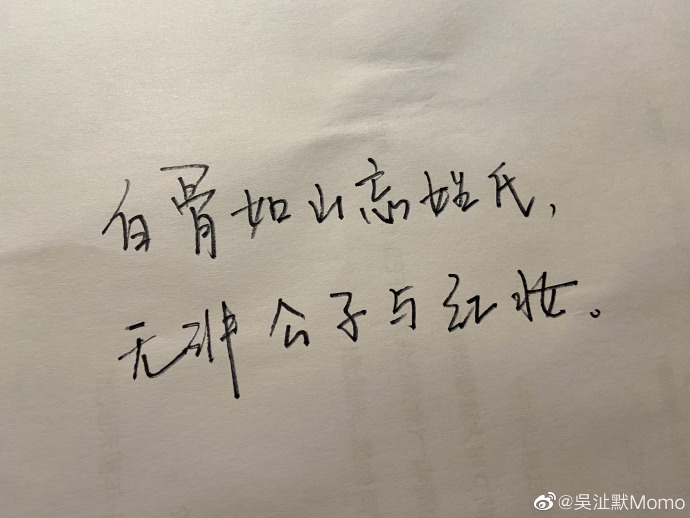 白骨如山忘姓氏，
无非公子与红妆。
@吳沚默Momo